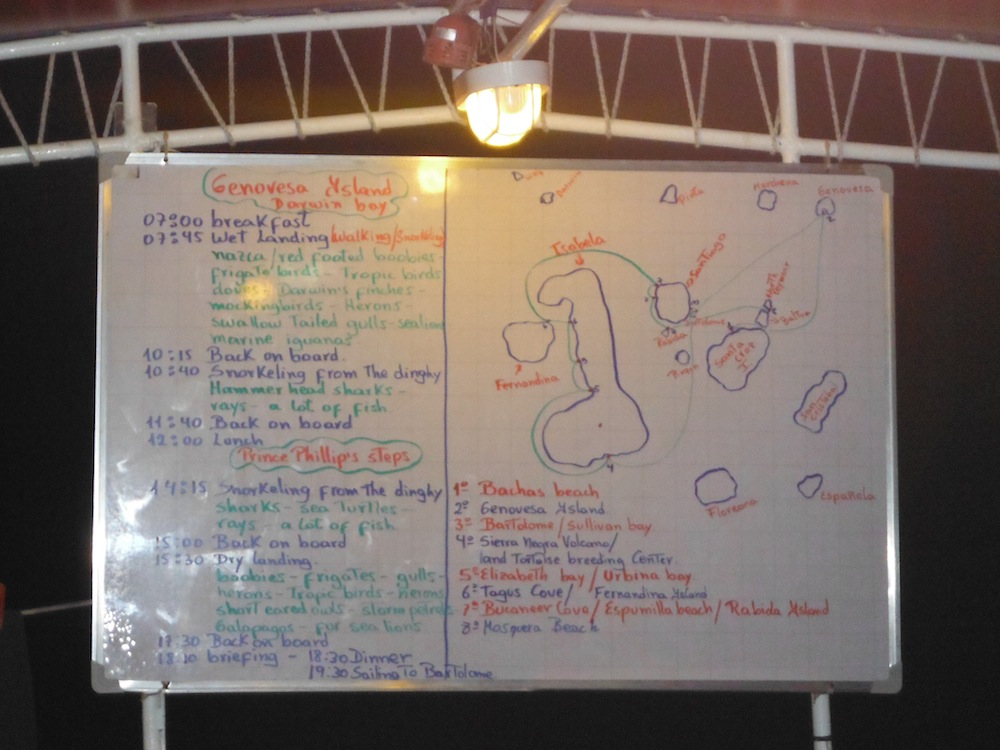 Genovesa Island
Darwin bay
07:00 breakfast
07:45 Wet Landing (walking/Snorkeling)
nazca/red footed boobies-
frigate birds - Tropic birds
doves - Darwin's finches -
mockingbirds - Herons -
swallow Tailed gulls - sealion
marine iguanas
10:15 Back on board.
10:40 Snorkeling from The dinghy
Hammer head sharks -
rays - a lot of fish.
11:40 Back on board
12:00 Lunch
Prince Phillip's steps
14:15 Snorkeling from The dinghy
sharks - sea Turtles -
rays - a lot of fish
15:00 Back on board
15:30 Dry landing.
boobies - frigates - gulls -
herons - Tropic birds - herons
short eared owls - storm petrels
Galapagos - fur sea lions
17:30 Back on board
briefing - 18:30 Dinner
19:30 Sailing To Bartolome
Darwin
Pinta
Marchena
Genovesa
2
Isabela
Santiago
North Seymour
Baltra
Bartolome
Rabida
Santa
Cruz
I
Fernandina
San
Cristobal
4
Floreana
Española
1º Bachas beach
2º Genovesa Island
3º Bartolome/Sullivan bay
4º Sierra Negra Volcano/
land Tortoise breeding Center.
5º Elizabeth bay / Urbina bay
6º Tagus Cove/ Fernandina Island
7º Bucaneer Cove/ Espumilla beach/ Rabida Island
8º Mosquera Beach